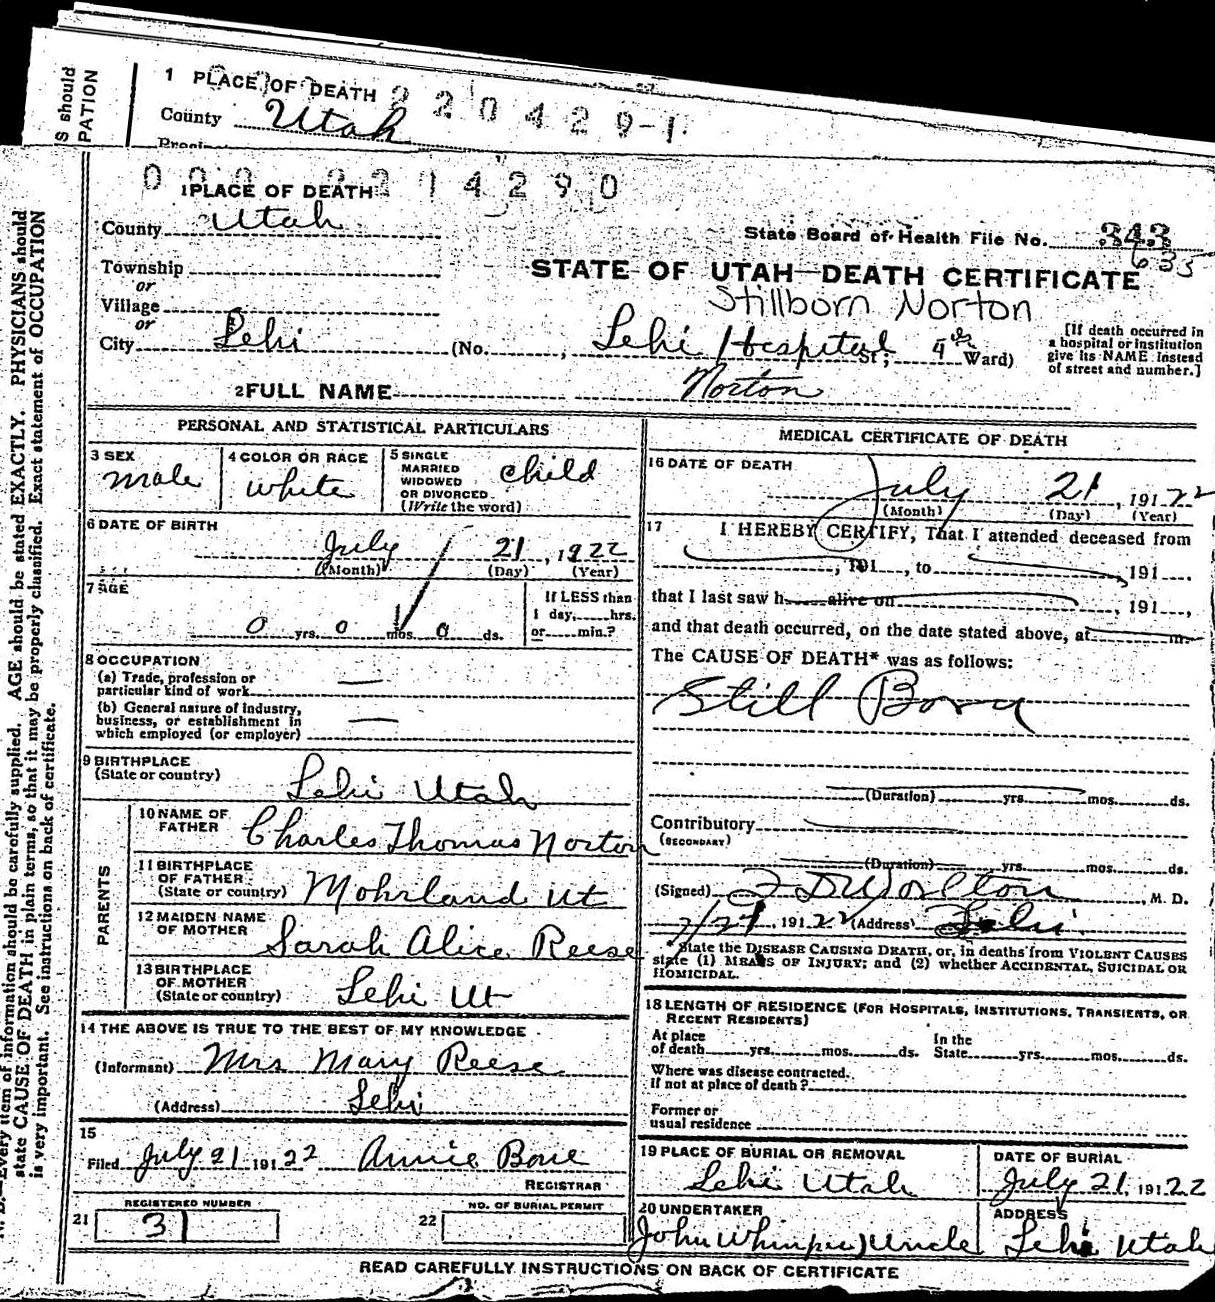 S should
PATION
1 PLACE OF DEATH
220429-1
County Utah
1 PLACE OF DEATH
2214290
County Utah
State Board of Health File No. 343
635
Township
or
STATE OF UTAH—DEATH CERTIFICATE
Village
Stillborn Norton
or
City Lehi (No. , Lehi Hospital St; 4th Ward)
[If death occurred in
a hospital or institution
give its NAME instead
of street and number.]
2 FULL NAME Norton
PERSONAL AND STATISTICAL PARTICULARS
3 SEX
male
4 COLOR OR RACE
white
5 SINGLE
MARRIED
WIDOWED
OR DIVORCED
(Write the word)
child
6 DATE OF BIRTH
July 21, 1922
(Month) (Day) (Year)
7 AGE
0 yrs. 0 mos. 0 ds.
If LESS than
1 day, hrs.
or min.?
8 OCCUPATION
(a) Trade, profession or
particular kind of work
(b) General nature of industry,
business, or establishment in
which employed (or employer)
9 BIRTHPLACE
(State or country)
Lehi Utah
PARENTS
10 NAME OF
FATHER
Charles Thomas Norton
11 BIRTHPLACE
OF FATHER
(State or country)
Mohrland Ut
12 MAIDEN NAME
OF MOTHER
Sarah Alice Reese
13 BIRTHPLACE
OF MOTHER
(State or country)
Lehi Ut
14 THE ABOVE IS TRUE TO THE BEST OF MY KNOWLEDGE
(Informant) Mrs Mary Reese
(Address) Lehi
15
Filed July 21 191 22 Annie Bone
REGISTRAR
REGISTERED NUMBER
21 31
NO. OF BURIAL PERMIT
22
MEDICAL CERTIFICATE OF DEATH
16 DATE OF DEATH
July 21, 191 22
(Month) (Day) (Year)
17 I HEREBY CERTIFY, That I attended deceased from
, 191 , to 191 ,
that I last saw h alive on , 191 ,
and that death occurred, on the date stated above, at m.
The CAUSE OF DEATH* was as follows:
Still Born
(Duration) yrs. mos. ds.
Contributory
(SECONDARY)
(Duration) yrs. mos. ds.
(Signed) , M. D.
, 191 22 (Address) Lehi
*State the DISEASE CAUSING DEATH, or, in deaths from VIOLENT CAUSES
state (1) MEANS OF INJURY; and (2) whether ACCIDENTAL, SUICIDAL OR
HOMICIDAL.
18 LENGTH OF RESIDENCE (FOR HOSPITALS, INSTITUTIONS, TRANSIENTS, OR
RECENT RESIDENTS)
At place
of death yrs. mos. ds.
In the
State yrs. mos. ds.
Where was disease contracted,
if not at place of death?
Former or
usual residence
19 PLACE OF BURIAL OR REMOVAL
Lehi Utah
DATE OF BURIAL
July 21, 191 22
20 UNDERTAKER
John Uncle
ADDRESS
Lehi Utah
READ CAREFULLY INSTRUCTIONS ON BACK OF CERTIFICATE
Every item of information should be carefully supplied. AGE should be stated EXACTLY. PHYSICIANS should
state CAUSE OF DEATH in plain terms, so that it may be properly classified. Exact statement of OCCUPATION
is very important. See instructions on back of certificate.